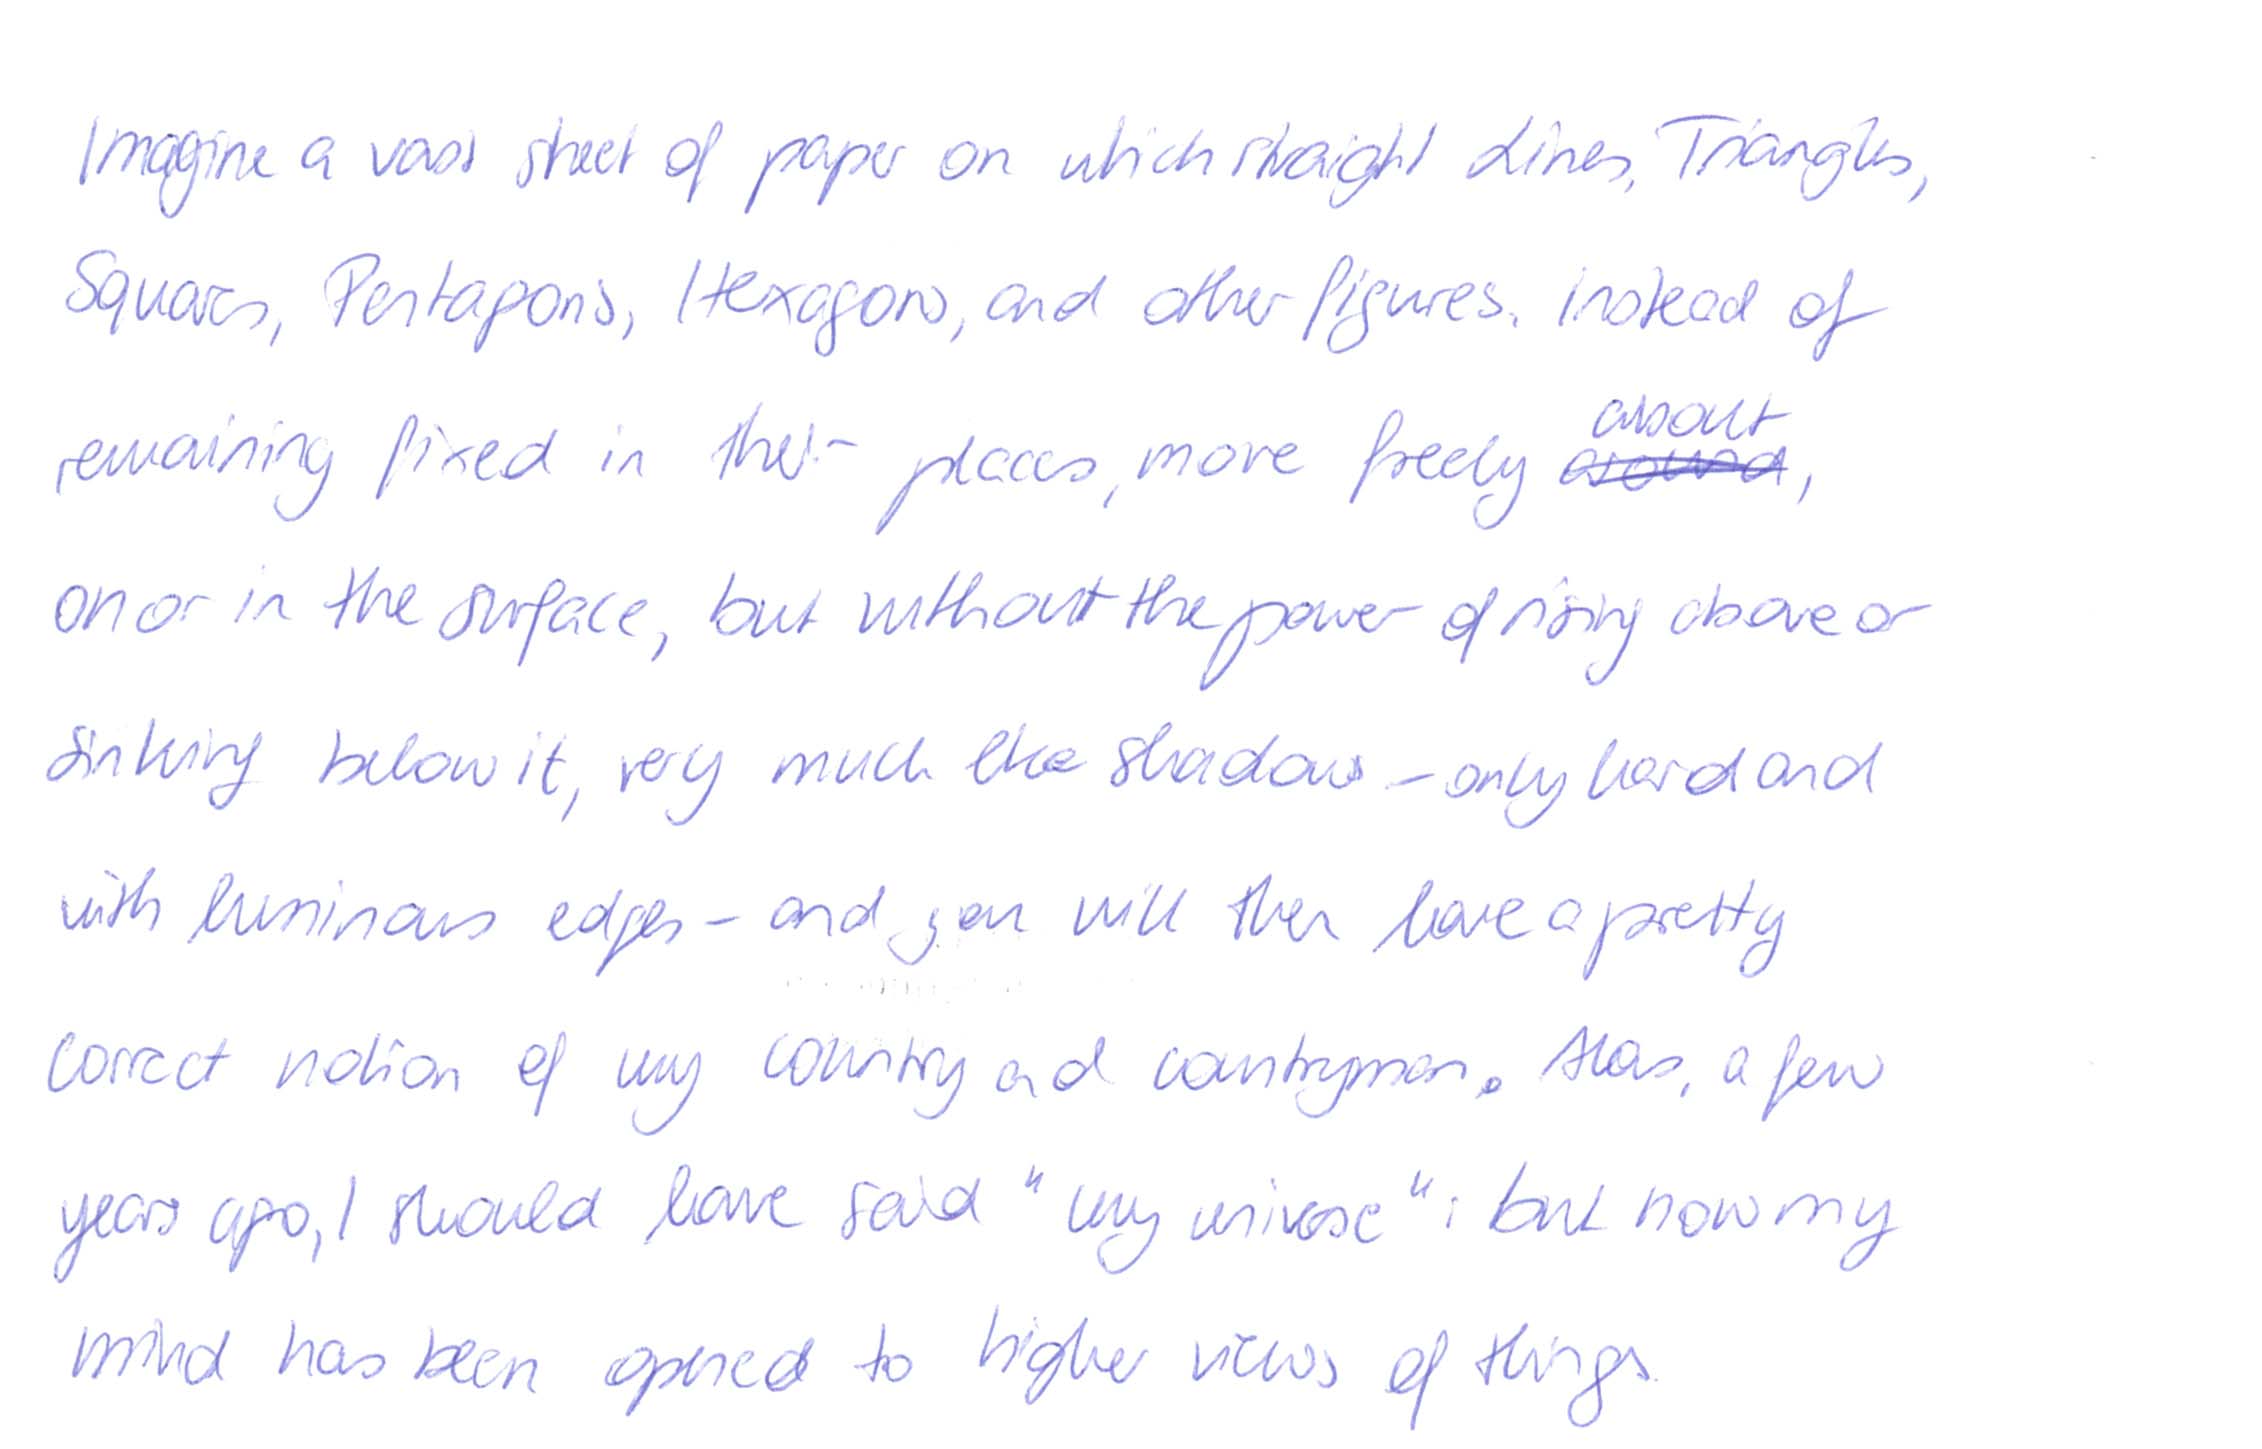 Imagine a vast sheet of paper on which straight Lines, Triangles,
Squares, Pentagons, Hexagons, and other figures, instead of
remaining fixed in their places, move freely about ~~around~~,
on or in the surface, but without the power of rising above or
sinking below it, very much like shadows – only hard and
with luminous edges – and you will then have a pretty
correct notion of my country and countrymen. Alas, a few
years ago, I should have said "my universe": but now my
mind has been opened to higher views of things.